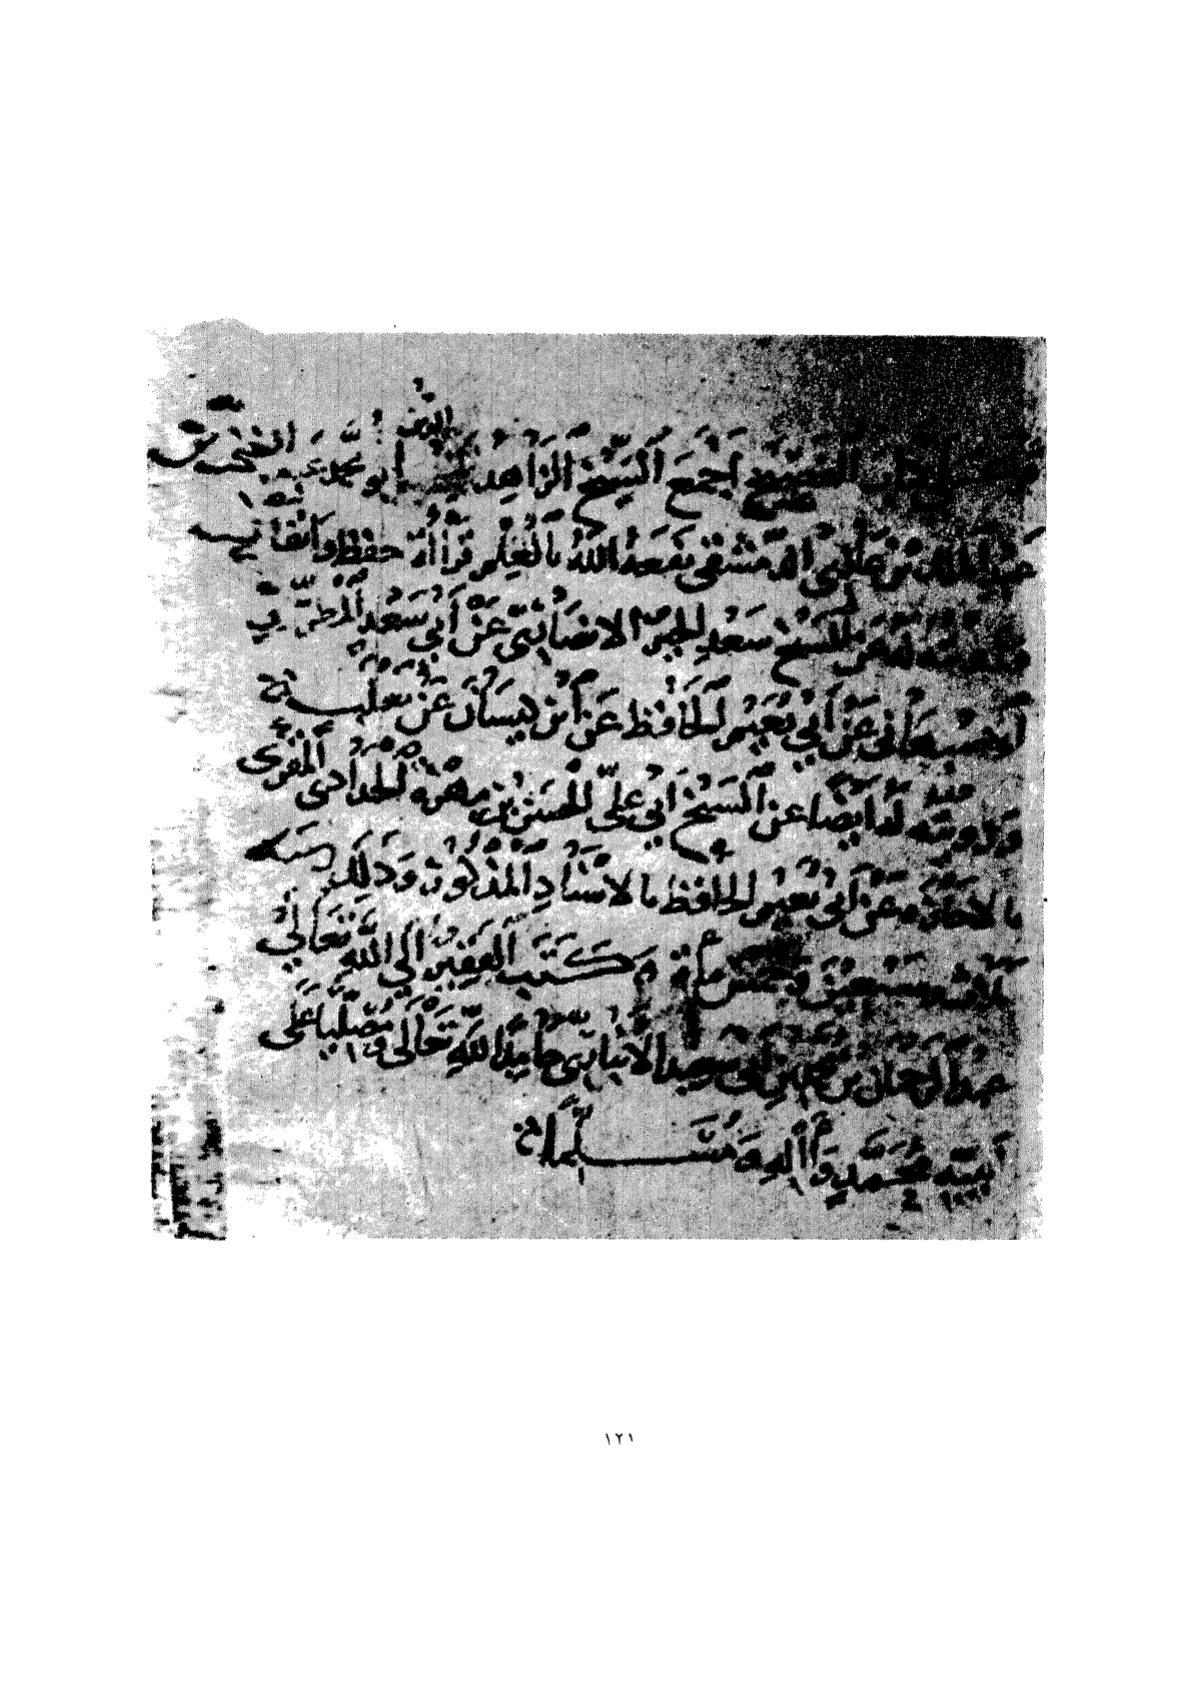 الفصيح اجمع الشيخ الزاهد ابو محمد عبد الغني بن
عبد الملك بن علي الدمشقي نفعه الله بالعلم قراءة حفظ واتقان
عن الشيخ سعد الخير الانصاري عن أبي سعد المطرز
الاصبهاني عن أبي نعيم الحافظ عن ابن كيسان عن ثعلب
ورويته له ايضا عن الشيخ أبي علي الحسن بن مهرة الحدادي المقرئ
بالاجازة عن أبي نعيم الحافظ بالاسناد المذكور وذلك سنة
ثلاث وسبعين وخمس مائة كتب الفقير إلى الله تعالى
عبد الرحمن بن محمد بن أبي سعيد الأنباري حامدا لله تعالى ومصليا على
نبيه محمد وآله ومسلما
١٢١